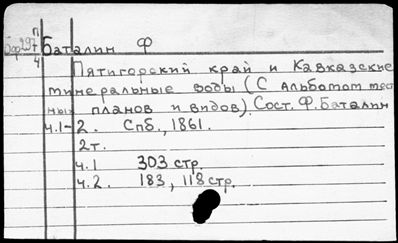 п
Бф297 Баталин Ф
4
Пятигорский край и Кавказские
минеральные воды (С альбомом тео
ных планов и видов). Сост. Ф. Баталин
ч.1-2. Спб., 1861.
2т.
ч.1 303 стр.
ч.2. 183, 118 стр.